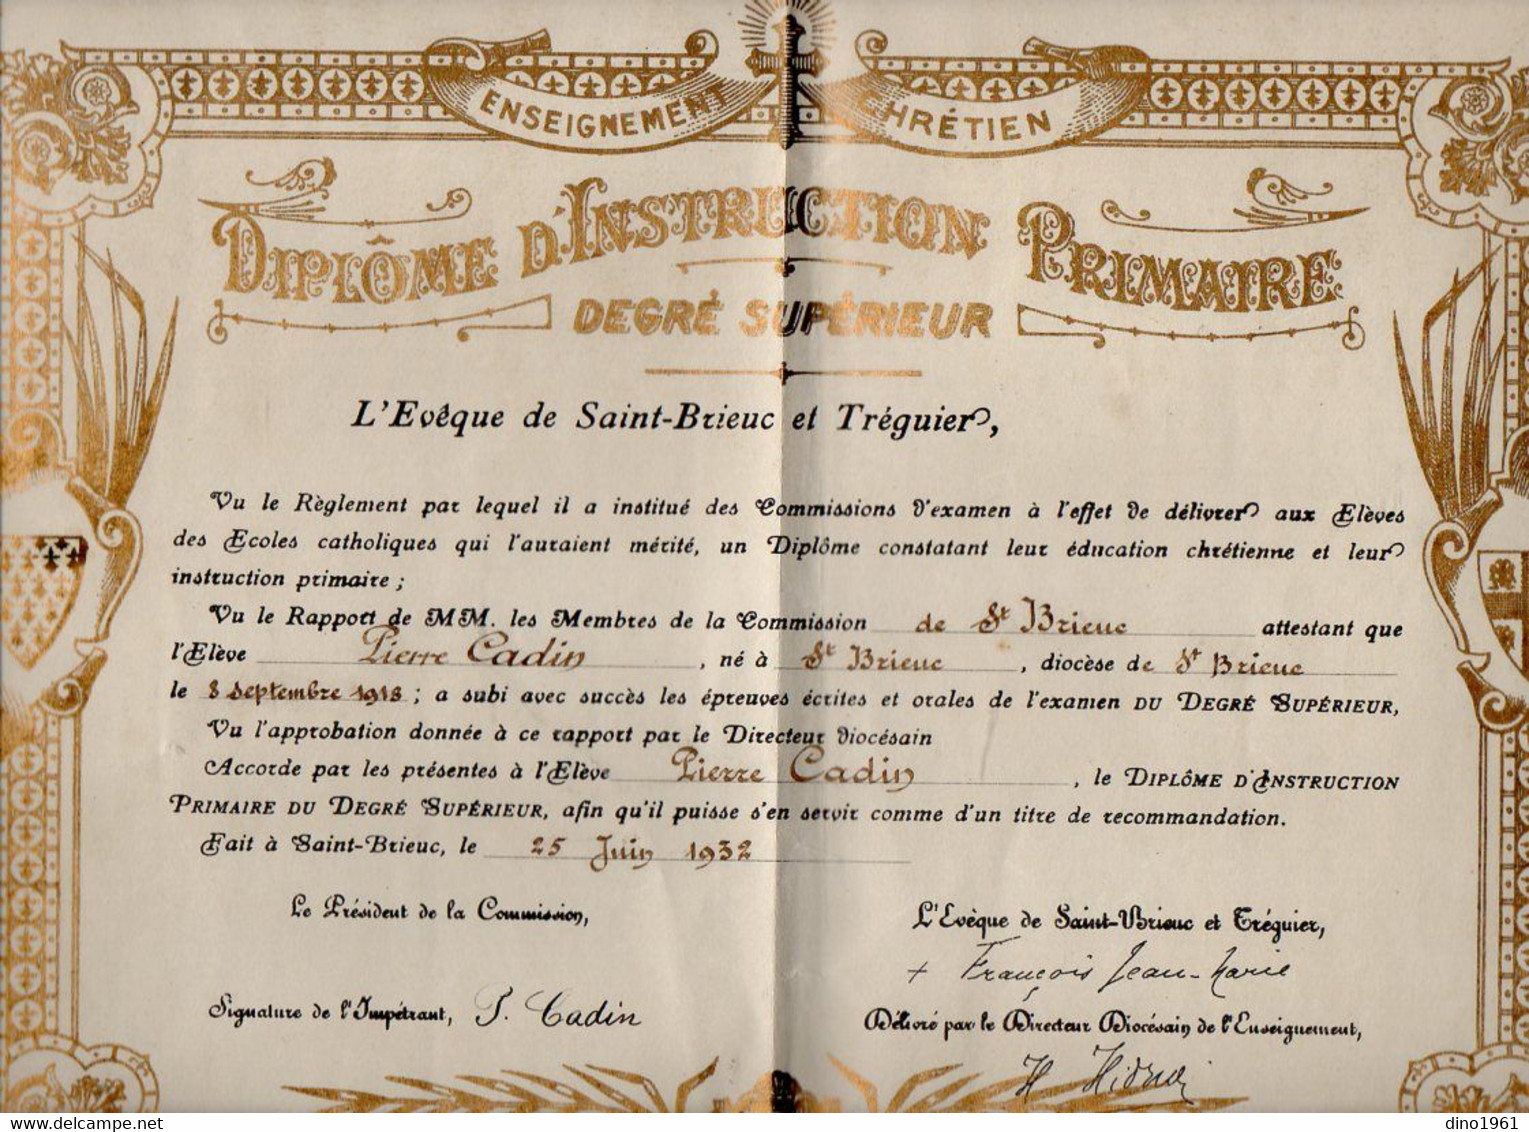 ENSEIGNEMENT CHRÉTIEN
DIPLÔME D'INSTRUCTION PRIMAIRE
DEGRÉ SUPÉRIEUR
L'Evêque de Saint-Brieuc et Tréguier,
Vu le Règlement par lequel il a institué des Commissions d'examen à l'effet de délivrer aux Elèves
des Ecoles catholiques qui l'auraient mérité, un Diplôme constatant leur éducation chrétienne et leur
instruction primaire ;
Vu le Rapport de MM. les Membres de la Commission de St Brieuc attestant que
l'Elève Pierre Cadin, né à St Brieuc, diocèse de St Brieuc
le 8 septembre 1918 ; a subi avec succès les épreuves écrites et orales de l'examen DU DEGRÉ SUPÉRIEUR,
Vu l'approbation donnée à ce rapport par le Directeur diocésain
Accorde par les présentes à l'Elève Pierre Cadin, le DIPLÔME D'INSTRUCTION
PRIMAIRE DU DEGRÉ SUPÉRIEUR, afin qu'il puisse s'en servir comme d'un titre de recommandation.
Fait à Saint-Brieuc, le 25 Juin 1932
Le Président de la Commission,
L'Evèque de Saint-Brieuc et Tréguier,
+ François Jean-Marie
Signature de l'Impétrant, P. Cadin
Délivré par le Directeur Diocésain de l'Enseignement,
H
delcampe.net
dino1961